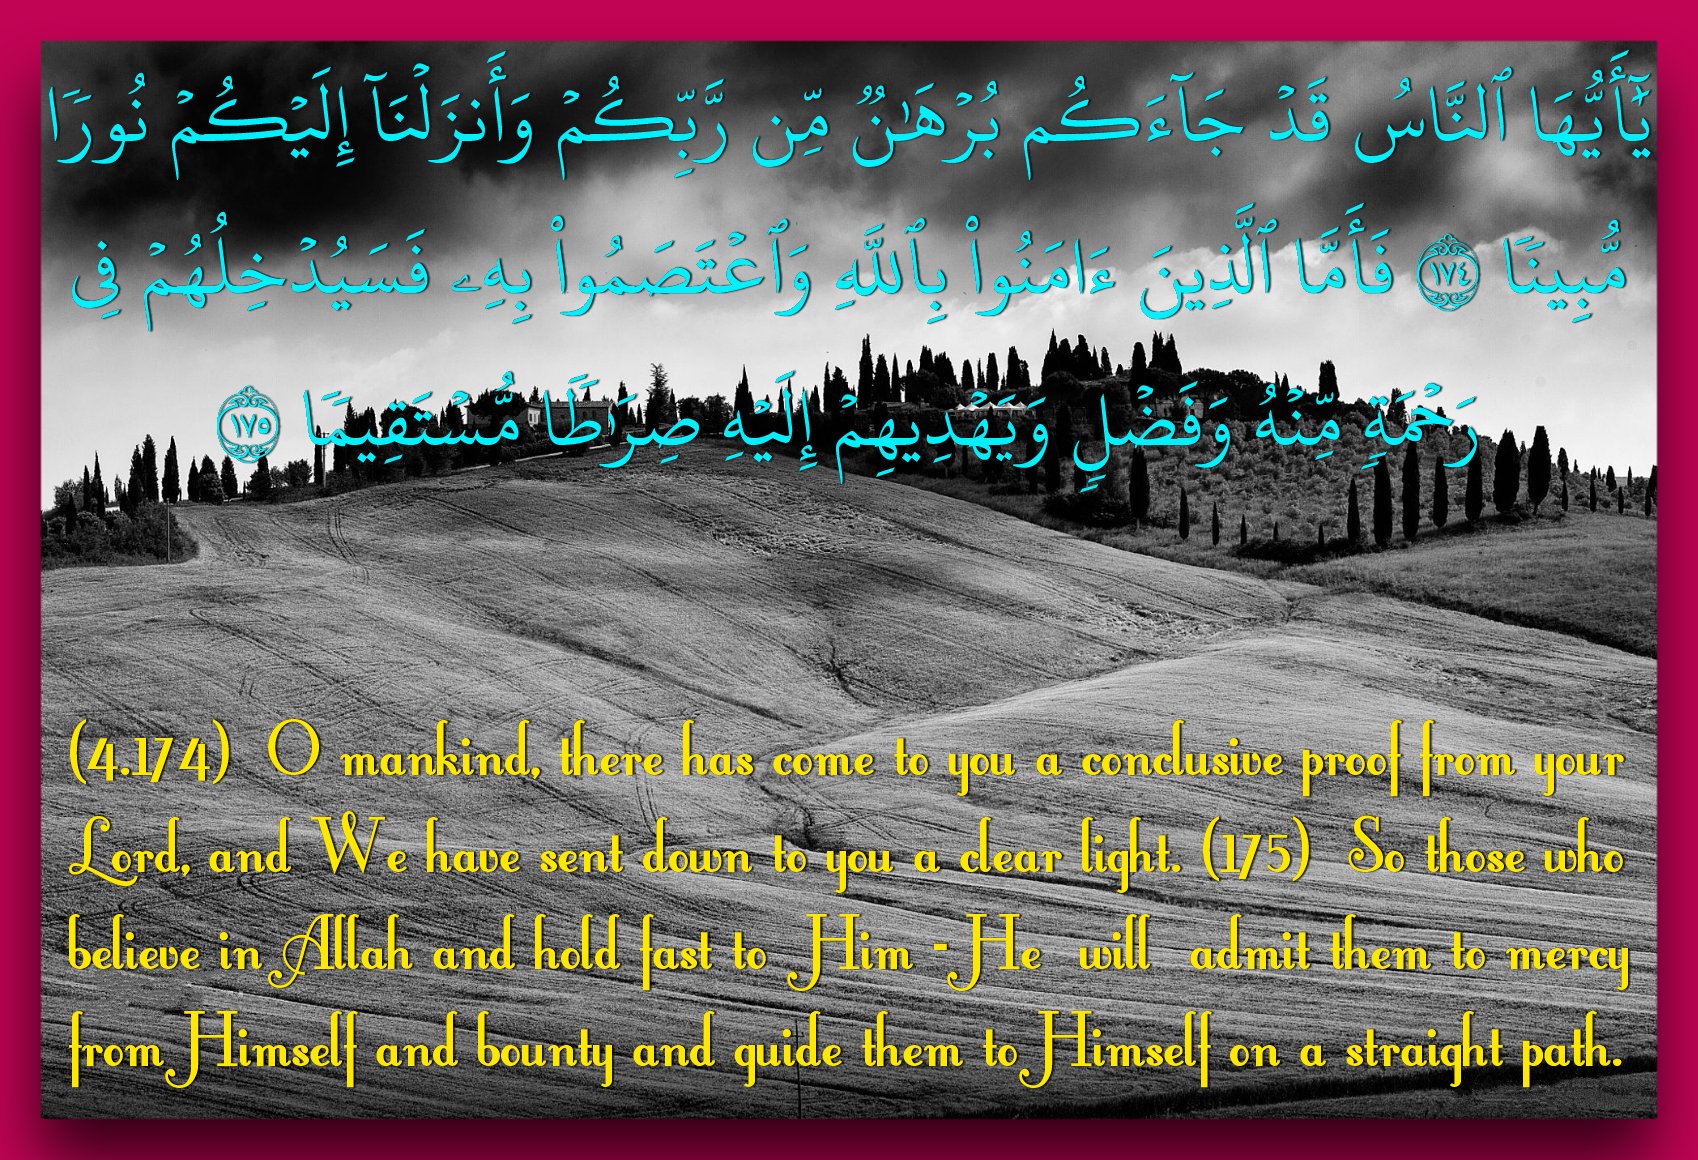 يَٰٓأَيُّهَا ٱلنَّاسُ قَدْ جَآءَكُم بُرْهَٰنٌ مِّن رَّبِّكُمْ وَأَنزَلْنَآ إِلَيْكُمْ نُورًا
مُّبِينًا ١٧٤ فَأَمَّا ٱلَّذِينَ ءَامَنُوا۟ بِٱللَّهِ وَٱعْتَصَمُوا۟ بِهِۦ فَسَيُدْخِلُهُمْ فِى
رَحْمَةٍ مِّنْهُ وَفَضْلٍ وَيَهْدِيهِمْ إِلَيْهِ صِرَٰطًا مُّسْتَقِيمًا ١٧٥
(4.174) O mankind, there has come to you a conclusive proof from your
Lord, and We have sent down to you a clear light. (175) So those who
believe in Allah and hold fast to Him - He will admit them to mercy
from Himself and bounty and guide them to Himself on a straight path.